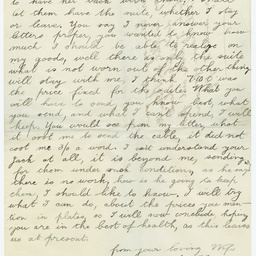 to have her
let them have the suite, whether I stay
or leave. You say I never answer your
letters proper, you wanted to know how
much I should be able to realize on
my goods, well there is only the suite
what is not worn out of the other things
will stay with me, I think £7.0.0 was
the price fixed for the suite. What you
will have to send, you know best, what
you send, and what I can't spend, I will
keep. You would see from my letter what
it cost me to send the cable, it did not
cost me 2/6 a word. I can't understand your
Jack at all, it is beyond me, sending
for them under such conditions, as he says
there is no work, how is he going to keep
them, I should like to know, I will try
what I can do, about the prices you men-
tion in plates, so I will now conclude hoping
you are in the best of health, as this leaves
us at present.
from your loving Wife